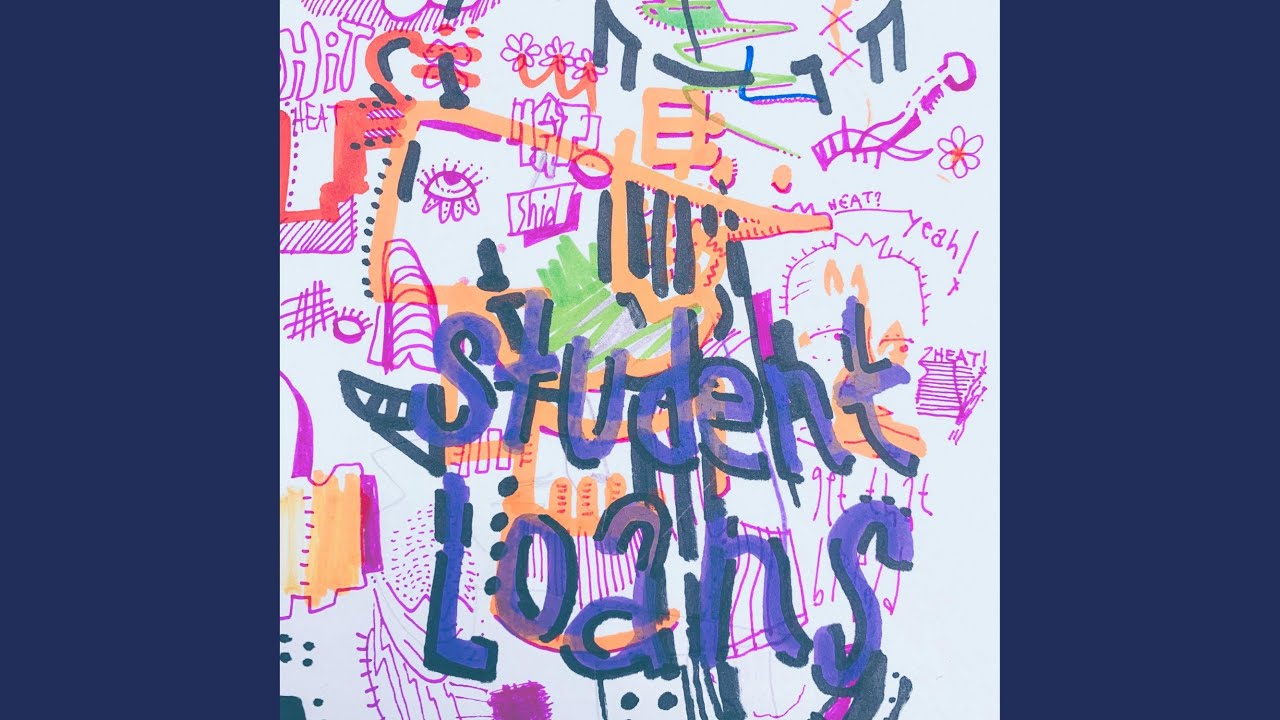 HiT
HEAT
Shid
HEAT?
yeah!
2HEAT!
Student
get that
Loans